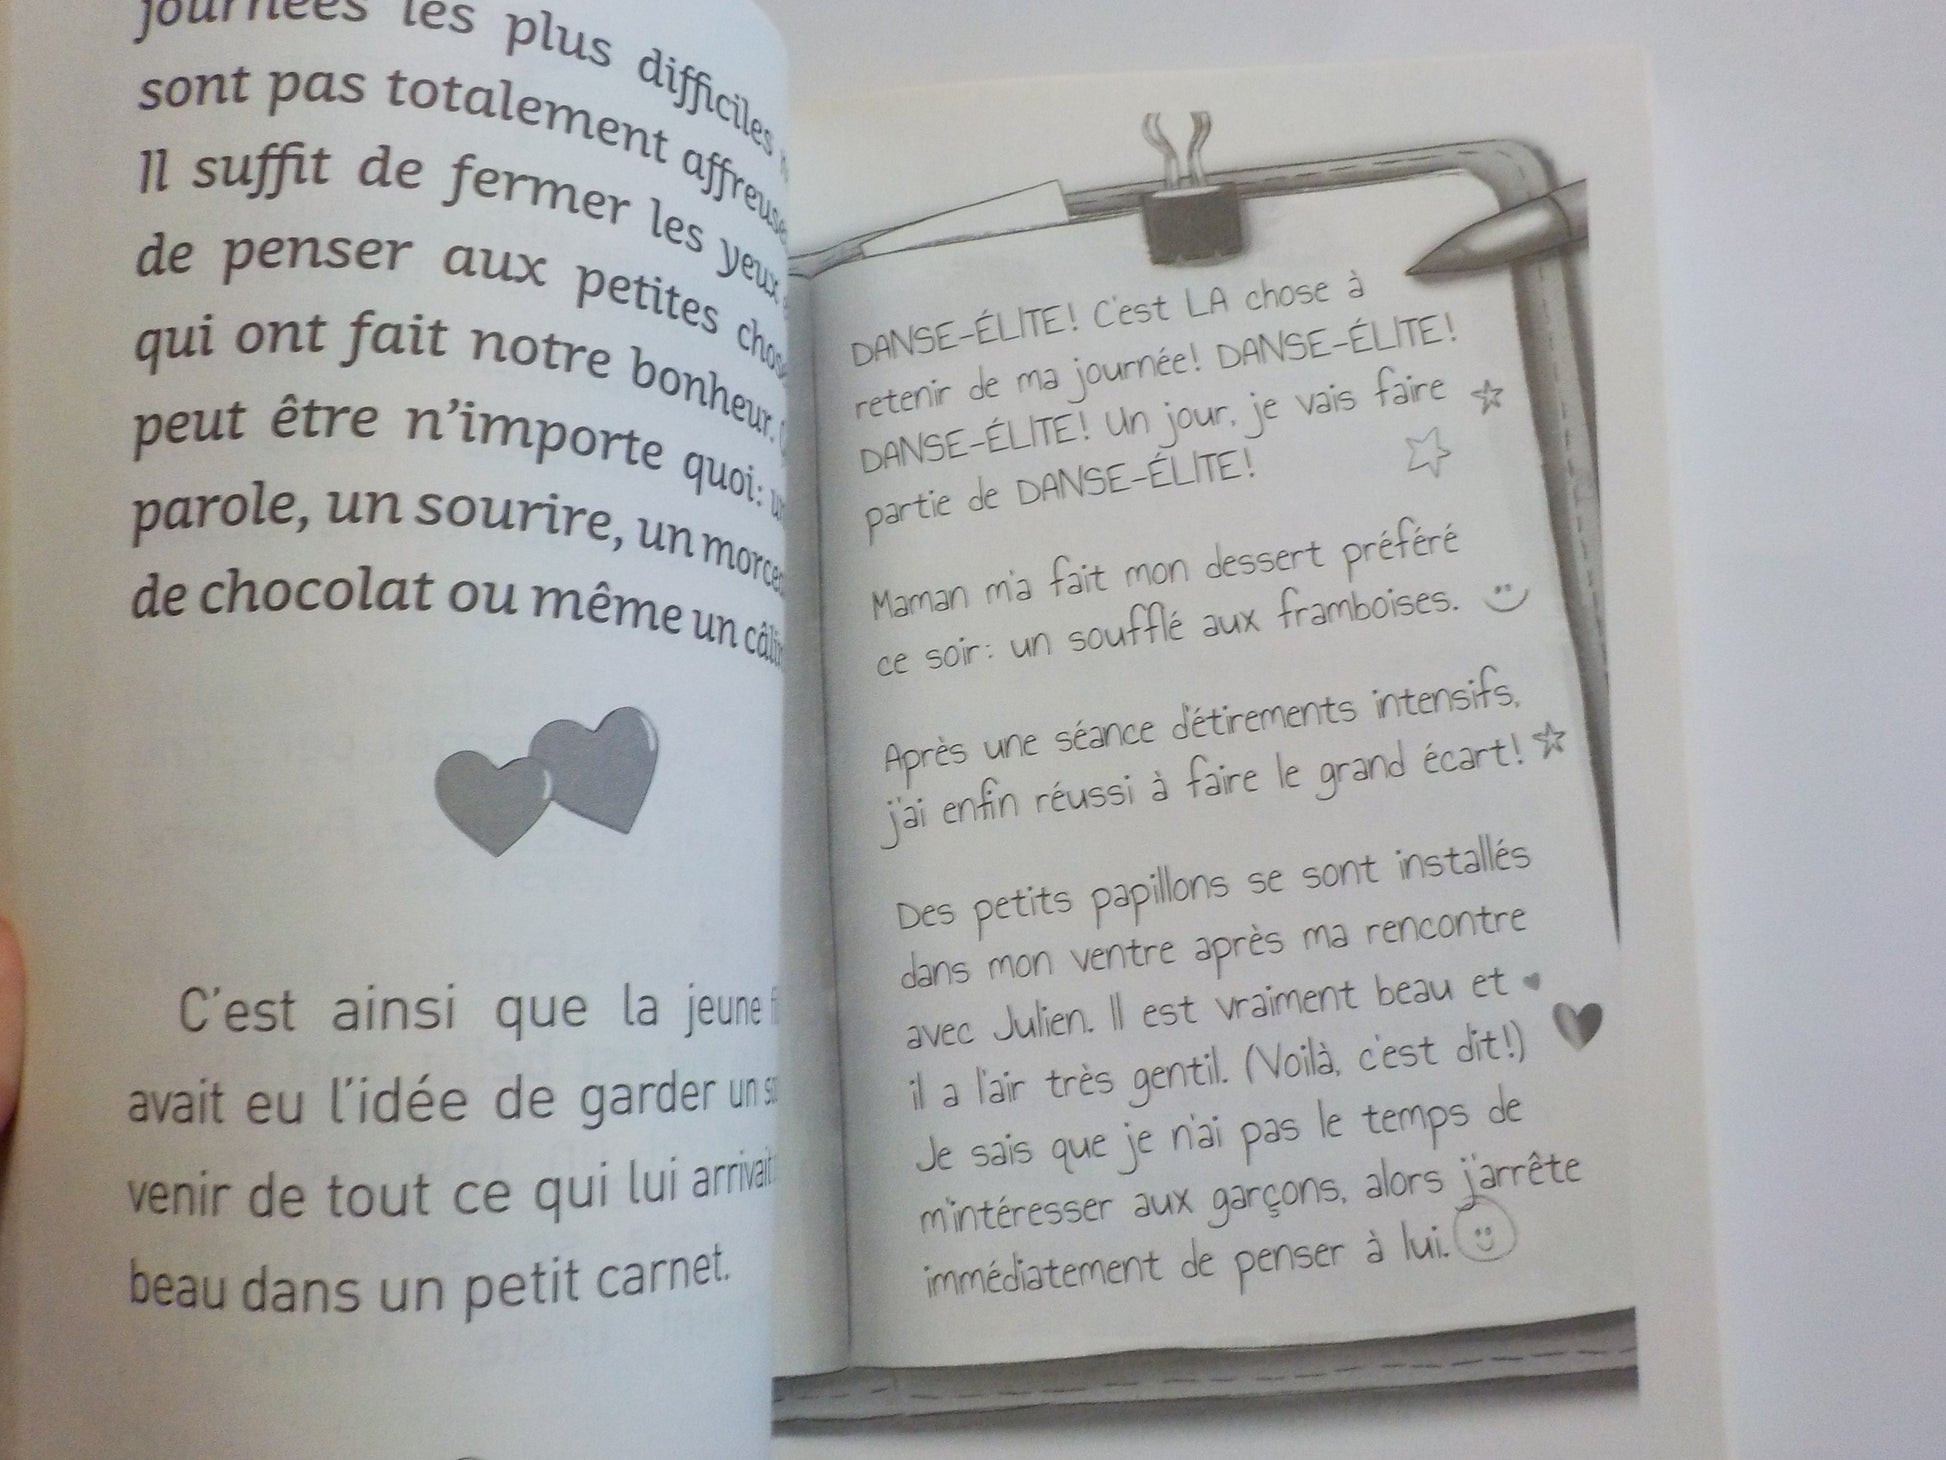 journées les plus difficiles
sont pas totalement affreuse
Il suffit de fermer les yeux
de penser aux petites chose
qui ont fait notre bonheur.
peut être n'importe quoi: un
parole, un sourire, un morce
de chocolat ou même un câlin
C'est ainsi que la jeune
avait eu l'idée de garder un
venir de tout ce qui lui arrivait
beau dans un petit carnet.
DANSE-ÉLITE! C'est LA chose à
retenir de ma journée! DANSE-ÉLITE!
DANSE-ÉLITE! Un jour, je vais faire
partie de DANSE-ÉLITE!
Maman m'a fait mon dessert préféré
ce soir: un soufflé aux framboises.
Après une séance d'étirements intensifs,
j'ai enfin réussi à faire le grand écart!
Des petits papillons se sont installés
dans mon ventre après ma rencontre
avec Julien. Il est vraiment beau et
il a l'air très gentil. (Voilà, c'est dit!)
Je sais que je n'ai pas le temps de
m'intéresser aux garçons, alors j'arrête
immédiatement de penser à lui.